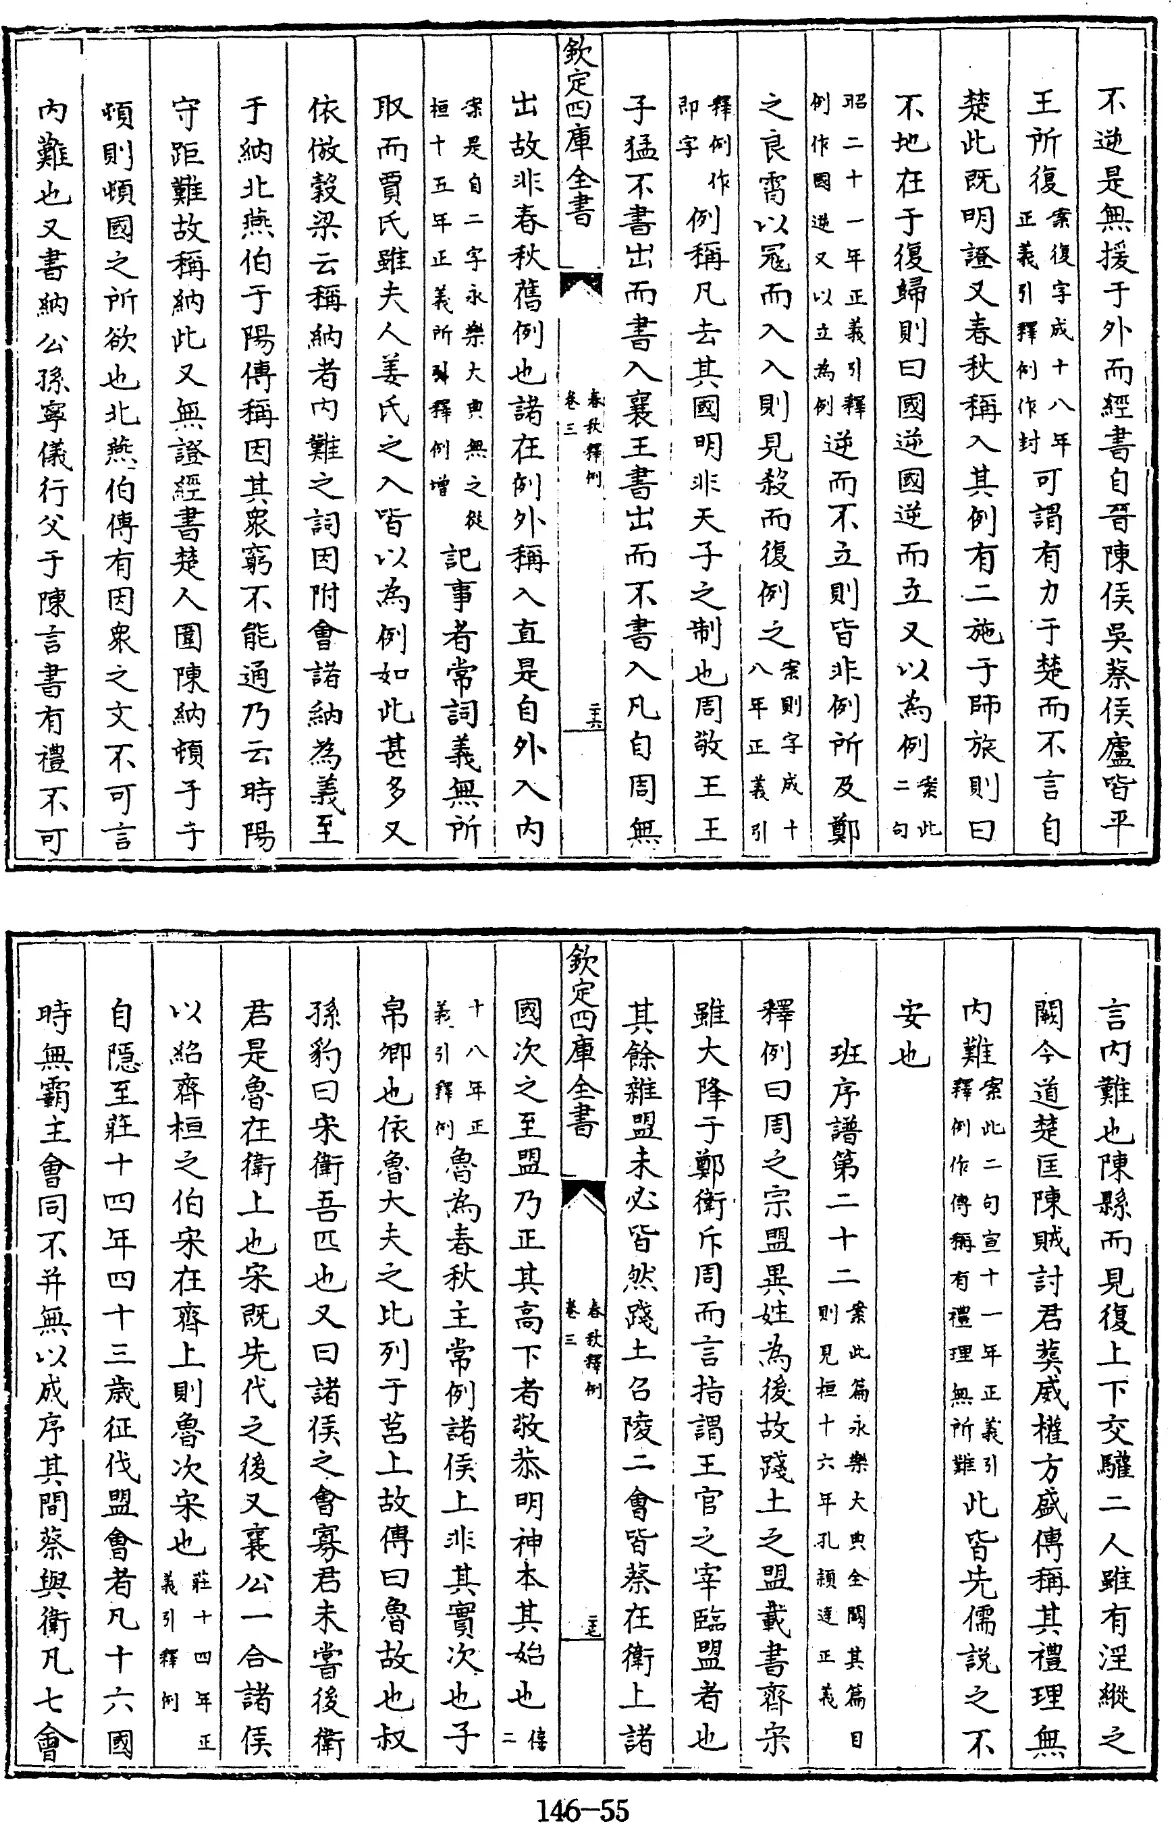 不逆是無援于外而經書自晉陳侯吳蔡侯廬皆平
王所復案復字成十八年正義引釋例作封可謂有力于楚而不言自
楚此既明證又春秋稱入其例有二施于師旅則曰
不地在于復歸則曰國逆國逆而立又以為例案此二句
昭二十一年正義引釋例作國逆又以立為例逆而不立則皆非例所及鄭
之良霄以冦而入入則見殺而復例之案則字成十八年正義引
釋例作即字例稱凡去其國明非天子之制也周敬王王
子猛不書出而書入襄王書出而不書入凡自周無
欽定四庫全書
春秋釋例
卷三
二十六
出故非春秋舊例也諸在例外稱入直是自外入內
案是自二字永樂大典無之從桓十五年正義所引釋例增記事者常詞義無所
取而賈氏雖夫人姜氏之入皆以為例如此甚多又
依倣穀梁云稱納者內難之詞因附會諸納為義至
于納北燕伯于陽傳稱因其衆窮不能通乃云時陽
守距難故稱納此又無證經書楚人圍陳納頓子于
頓則頓國之所欲也北燕伯傳有因衆之文不可言
內難也又書納公孫寧儀行父于陳言書有禮不可
言內難也陳縣而見復上下交驩二人雖有淫縱之
闕今道楚匡陳賊討君葬威權方盛傳稱其禮理無
內難案此二句宣十一年正義引釋例作傳稱有禮理無所難此皆先儒說之不
安也
班序譜第二十二案此篇永樂大典全闕其篇目則見桓十六年孔穎達正義
釋例曰周之宗盟異姓為後故踐土之盟載書齊宋
雖大降于鄭衛斥周而言指謂王官之宰臨盟者也
其餘雜盟未必皆然踐土召陵二會皆蔡在衛上諸
欽定四庫全書
春秋釋例
卷三
二十七
國次之至盟乃正其高下者敬恭明神本其始也僖二
十八年正義引釋例魯為春秋主常例諸侯上非其實次也子
帛卿也依魯大夫之比列于莒上故傳曰魯故也叔
孫豹曰宋衛吾匹也又曰諸侯之會寡君未嘗後衛
君是魯在衛上也宋既先代之後又襄公一合諸侯
以紹齊桓之伯宋在齊上則魯次宋也莊十四年正義引釋例
自隱至莊十四年四十三歲征伐盟會者凡十六國
時無霸主會同不并無以成序其間蔡與衛凡七會
146—55